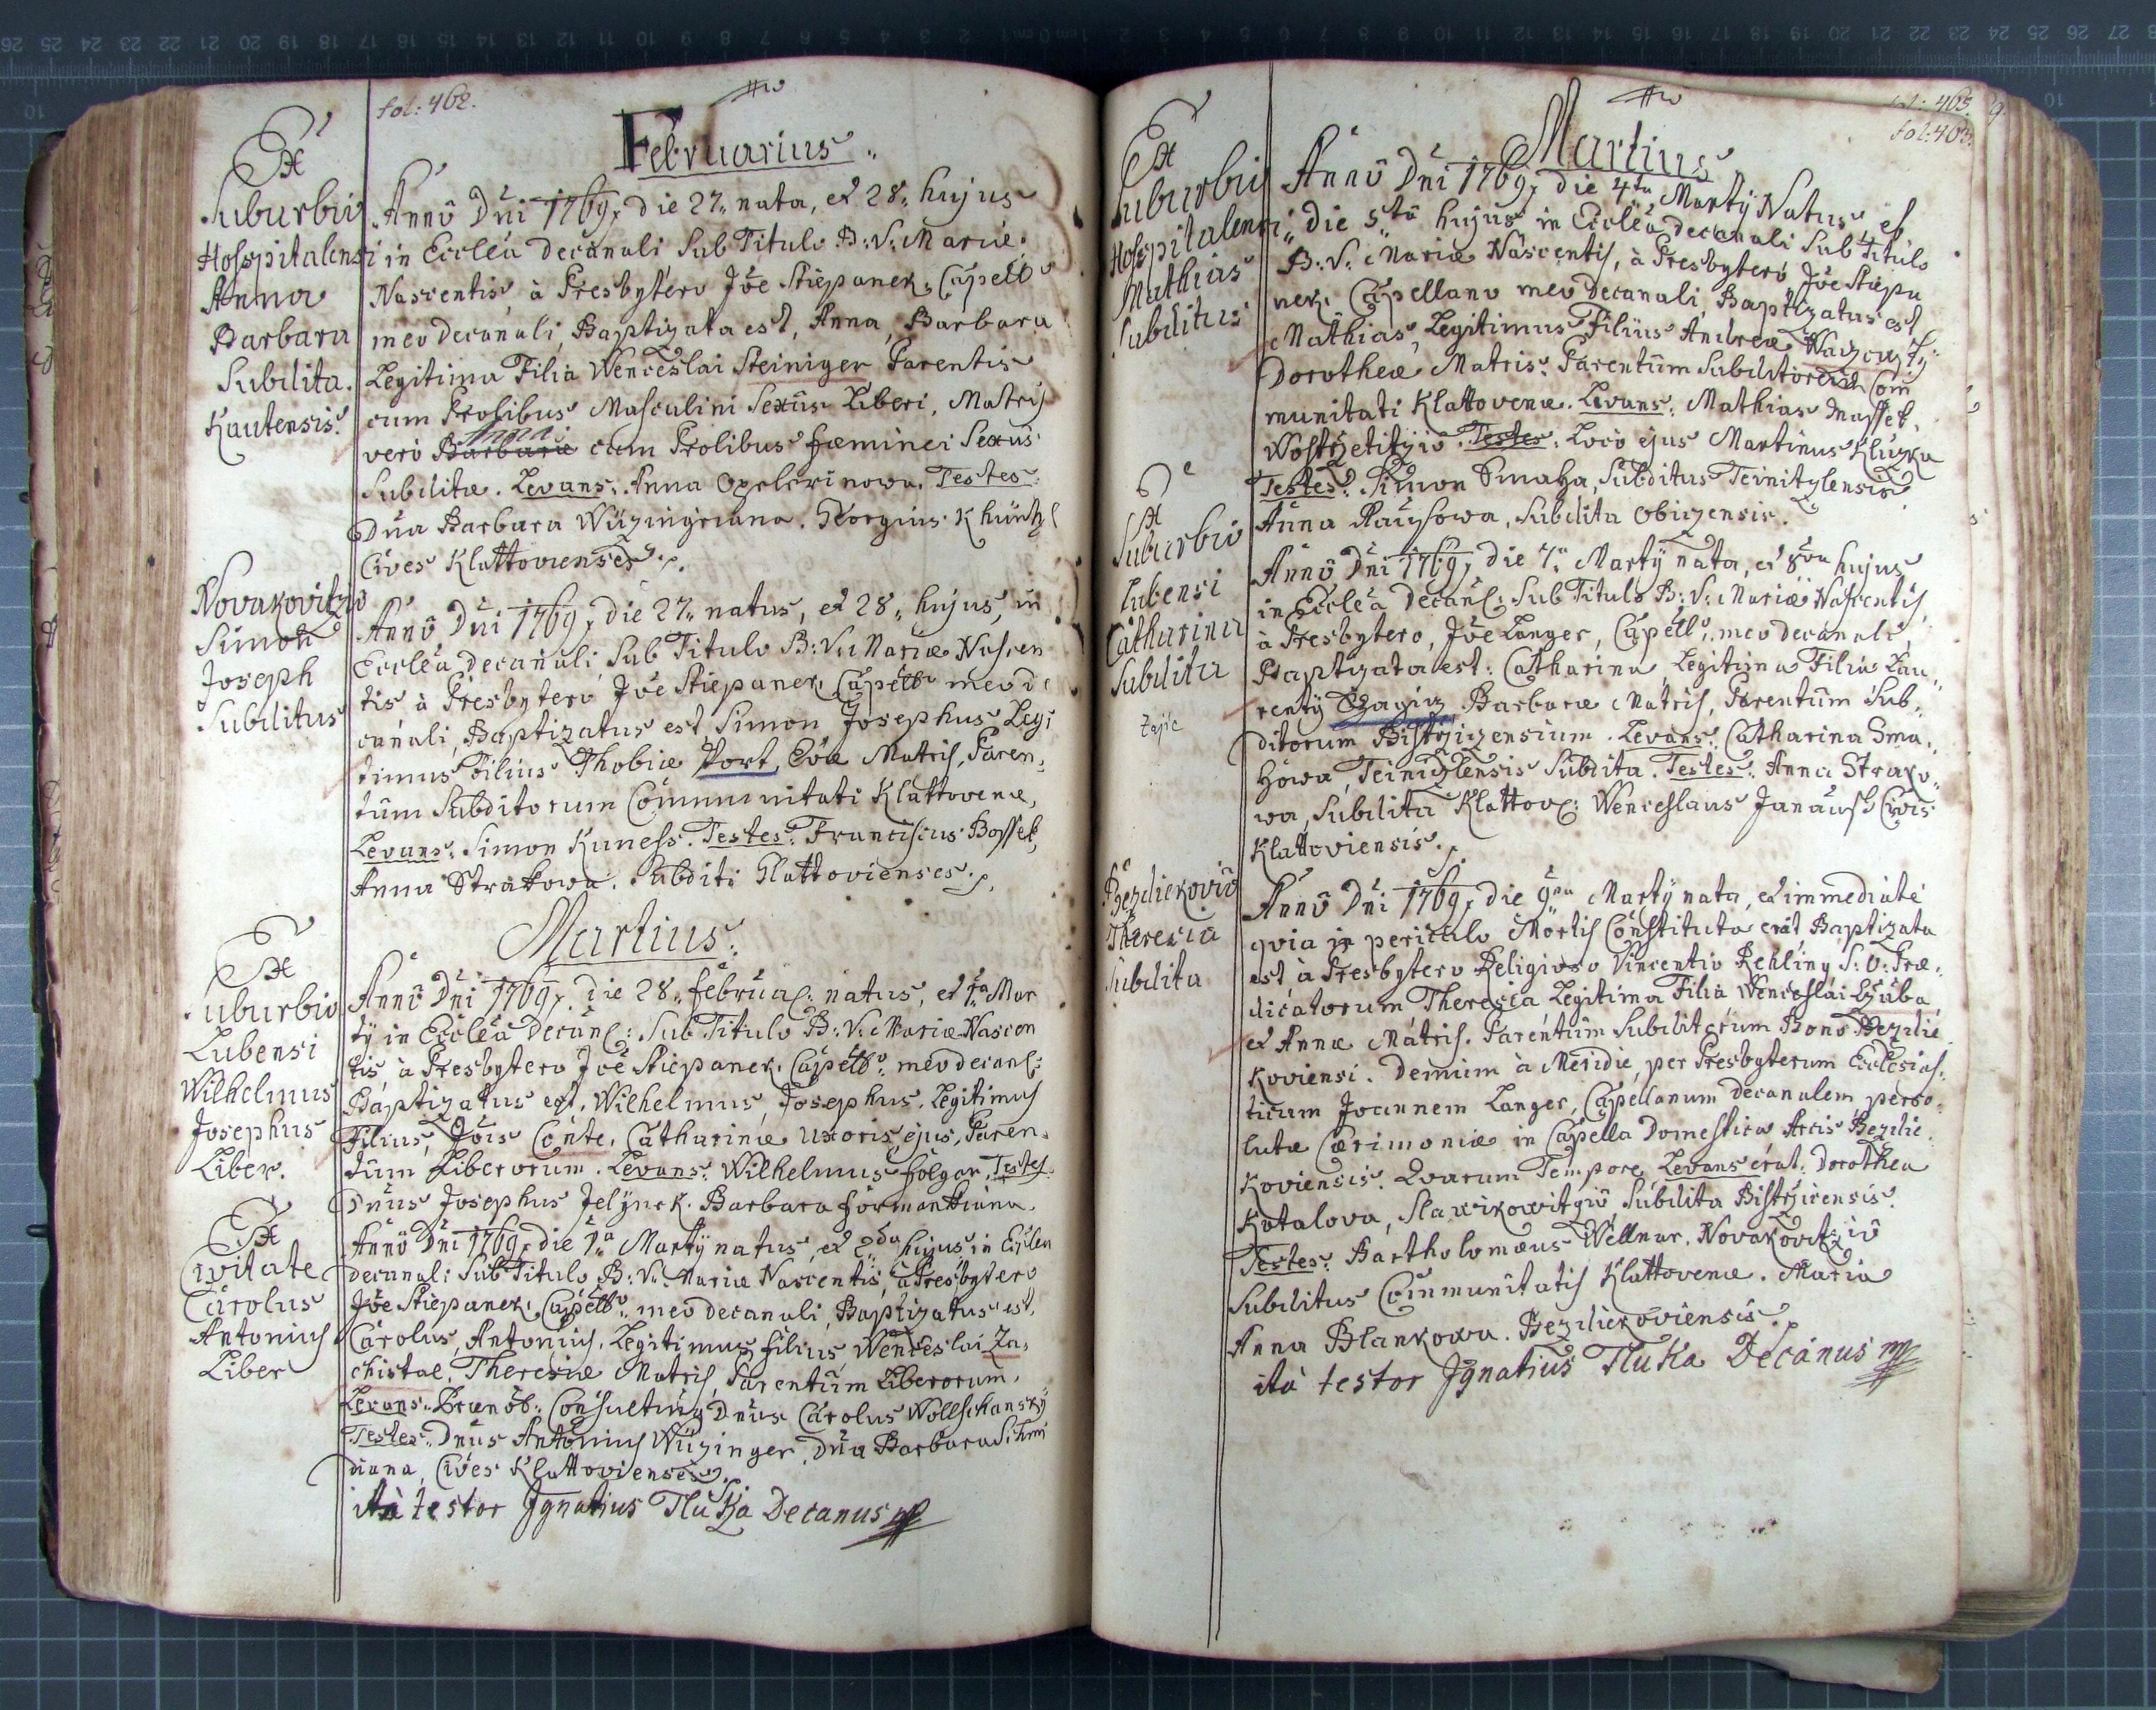 fol: 462.
Februarius
Ex
Suburbio
Hosspitalensi
Anna
Barbara
Subdita
Kautensis.
Anno Dni 1769, die 27. nata, et 28. hujus
in Ecclêa decanali Sub Titulo B: V: Mariæ
Nascentis à Presbytero Jôe Stiepanek, Capello
meo decanali, Baptizata est, Anna, Barbara
Legitima Filia Wenceslai Steiniger Parentis
cum Prolibus Masculini Sexûs Liberi, Matris
Anna
vero Barbaræ cum Prolibus fæminei Sexûs
Subditæ. Levans: Anna Opelcrinowa. Testes:
Dña Barbara Wüzingriana. Georgius Khüntzl
Cives Klattovienses.
Novakovitzio
Simon
Joseph
Subditus
Anno Dni 1769, die 27. natus, et 28. hujus, in
Ecclêa decanali Sub Titulo B: V: Mariæ Nascen
tis à Presbytero Jôe Stiepanek, Capello meo de
canali, Baptizatus est, Simon Josephus Legi
timus Filius Thobiæ Port, Evæ Matris, Paren,,
tum Subditorum Communitati Klattovenæ,
Levans: Simon Kuness. Testes: Franciscus Bosset,
Anna Strakowa. Subditi Glattovienses.
Martius.
Ex
Suburbio
Lubensi
Wilhelmus
Josephus
Liber.
Anno Dni 1769, die 28. februa: natus, et 1a Mar
tÿ in Ecclêa Decanl: Sub Titulo B: V: Mariæ Nascen
tis, à Presbytero Jôe Stiepanek, Capello meo decanl:
Baptizatus est, Wilhelmus, Josephus, Legitimus
Filius, Jôis Conte, Catharinæ uxoris ejus, Paren,,
tum Liberorum. Levans: Wilhelmus folgar, Testes
Dnus Josephus Jelÿnek. Barbara formanttiana.
Ex
Civitate
Carolus
Antonius
Liber
Anno Dni 1769, die 1a Martÿ natus, et 2da hujus in Ecclea
decanali Sub Titulo B: V: Mariæ Nascentis, à Presbytero
Jôe Stiepanek, Capello meo decanali, Baptizatus est,
Carolus, Antonius, Legitimus filius Wenceslai Za,,
chistal, Theresiæ Matris, Parentum Liberorum.
Levans: Prænob: Consultus Dnus Carolus Wollschanskÿ
Testes: Dnus Antonius Wüzinger, Dña Barbara Schmi
diana, Cives Klattovienses.
ità testor Jgnatius Tluka Decanus
fol: 463.
fol: 463.
Martius
Ex
Suburbio
Hosspitalensi
Mathias
Subditus
Anno Dni 1769, die 4ta Martÿ Natus et
die 5ta hujus in Ecclêa decanali Sub Titulo
B: V: Mariæ Nascentis, à Presbytero Jôe Stiepa
nek, Capellano meo decanali, Baptizatus est
Mathias, Legitimus Filius Andreæ
Dorotheæ Matris: Parentum Subditorum Com
munitati Klattovenæ. Levans: Mathias Masset.
Wostrzetitzio. Testes: Loco ejus Martinus Kluzka
Testes: Simon Smaha, Subditus Teinitzlensis
Anna Rausowa, Subdita Obizensis.
Ex
Suburbio
Lubensi
Catharina
Subdita
Zajíc
Anno Dni 1769, die 7. Martÿ nata, et 8va hujus
in Ecclêa Decanl: Sub Titulo B: V: Mariæ Nascentis,
à Presbytero, Jôe Langer, Capello meo decanali,
Baptizata est: Catharina, Legitima Filia Lau,,
rentÿ Barbaræ Matris, Parentum Sub,,
ditorum Bistrzizensium. Levans: Catharina Sma,,
howa, Teinitzlensis Subdita. Testes: Anna Strako,,
wa, Subdita Klattov: Wenceslaus Janaush Civis
Klattoviensis.
Bezdiekovio
Theresia
Subdita
Anno Dni 1769, die 9na Martÿ nata, et immediatè
qvia in periculo Mortis Constituta erat Baptizata
est à Presbytero Religioso Vincentio Rehling S: O: Præ,,
dicatorum Theresia Legitima Filia Wenceslai
et Annæ Matris. Parentum Subditorum Bono Bezdie
koviensi. Demum à Meridie, per Presbyterum Ecclesias,,
ticum Joannem Langer, Capellanum decanalem perso,,
lutæ Cærimoniæ in Capella Domestica Arcis Bezdie
koviensis. Qvarum Tempore Levans erat: Dorothea
Kotalova, Slawikowitzio, Subdita Bistrzicensis.
Testes: Bartholomæus Wellnar, Novakovitzio
Subditus Communitatis Klattovenæ. Maria
Anna Blankowa. Bezdiekoviensis.
ità testor Jgnatius Tluka Decanus